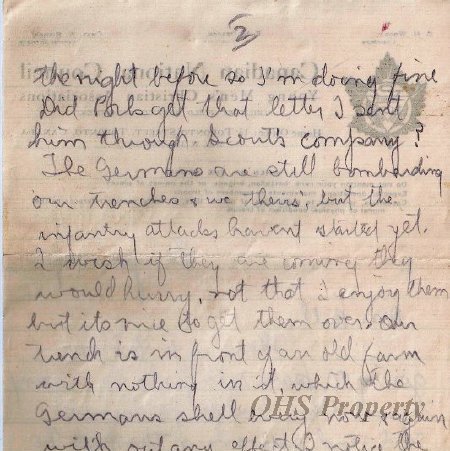 2
the night before so I'm doing fine
Did Porks get that letter I sent
him through Scout's company?
The Germans are still bombarding
our trenches & we theirs, but the
infantry attacks havent started yet.
I wish if they are coming they
would hurry, not that I enjoy them
but its nice to get them over. Our
trench is in front of an old farm
with nothing in it, which the
Germans shell every now & again
with out any effect. I notice the
Canadian National Council
Young Men's Christian Associations
OHS Property